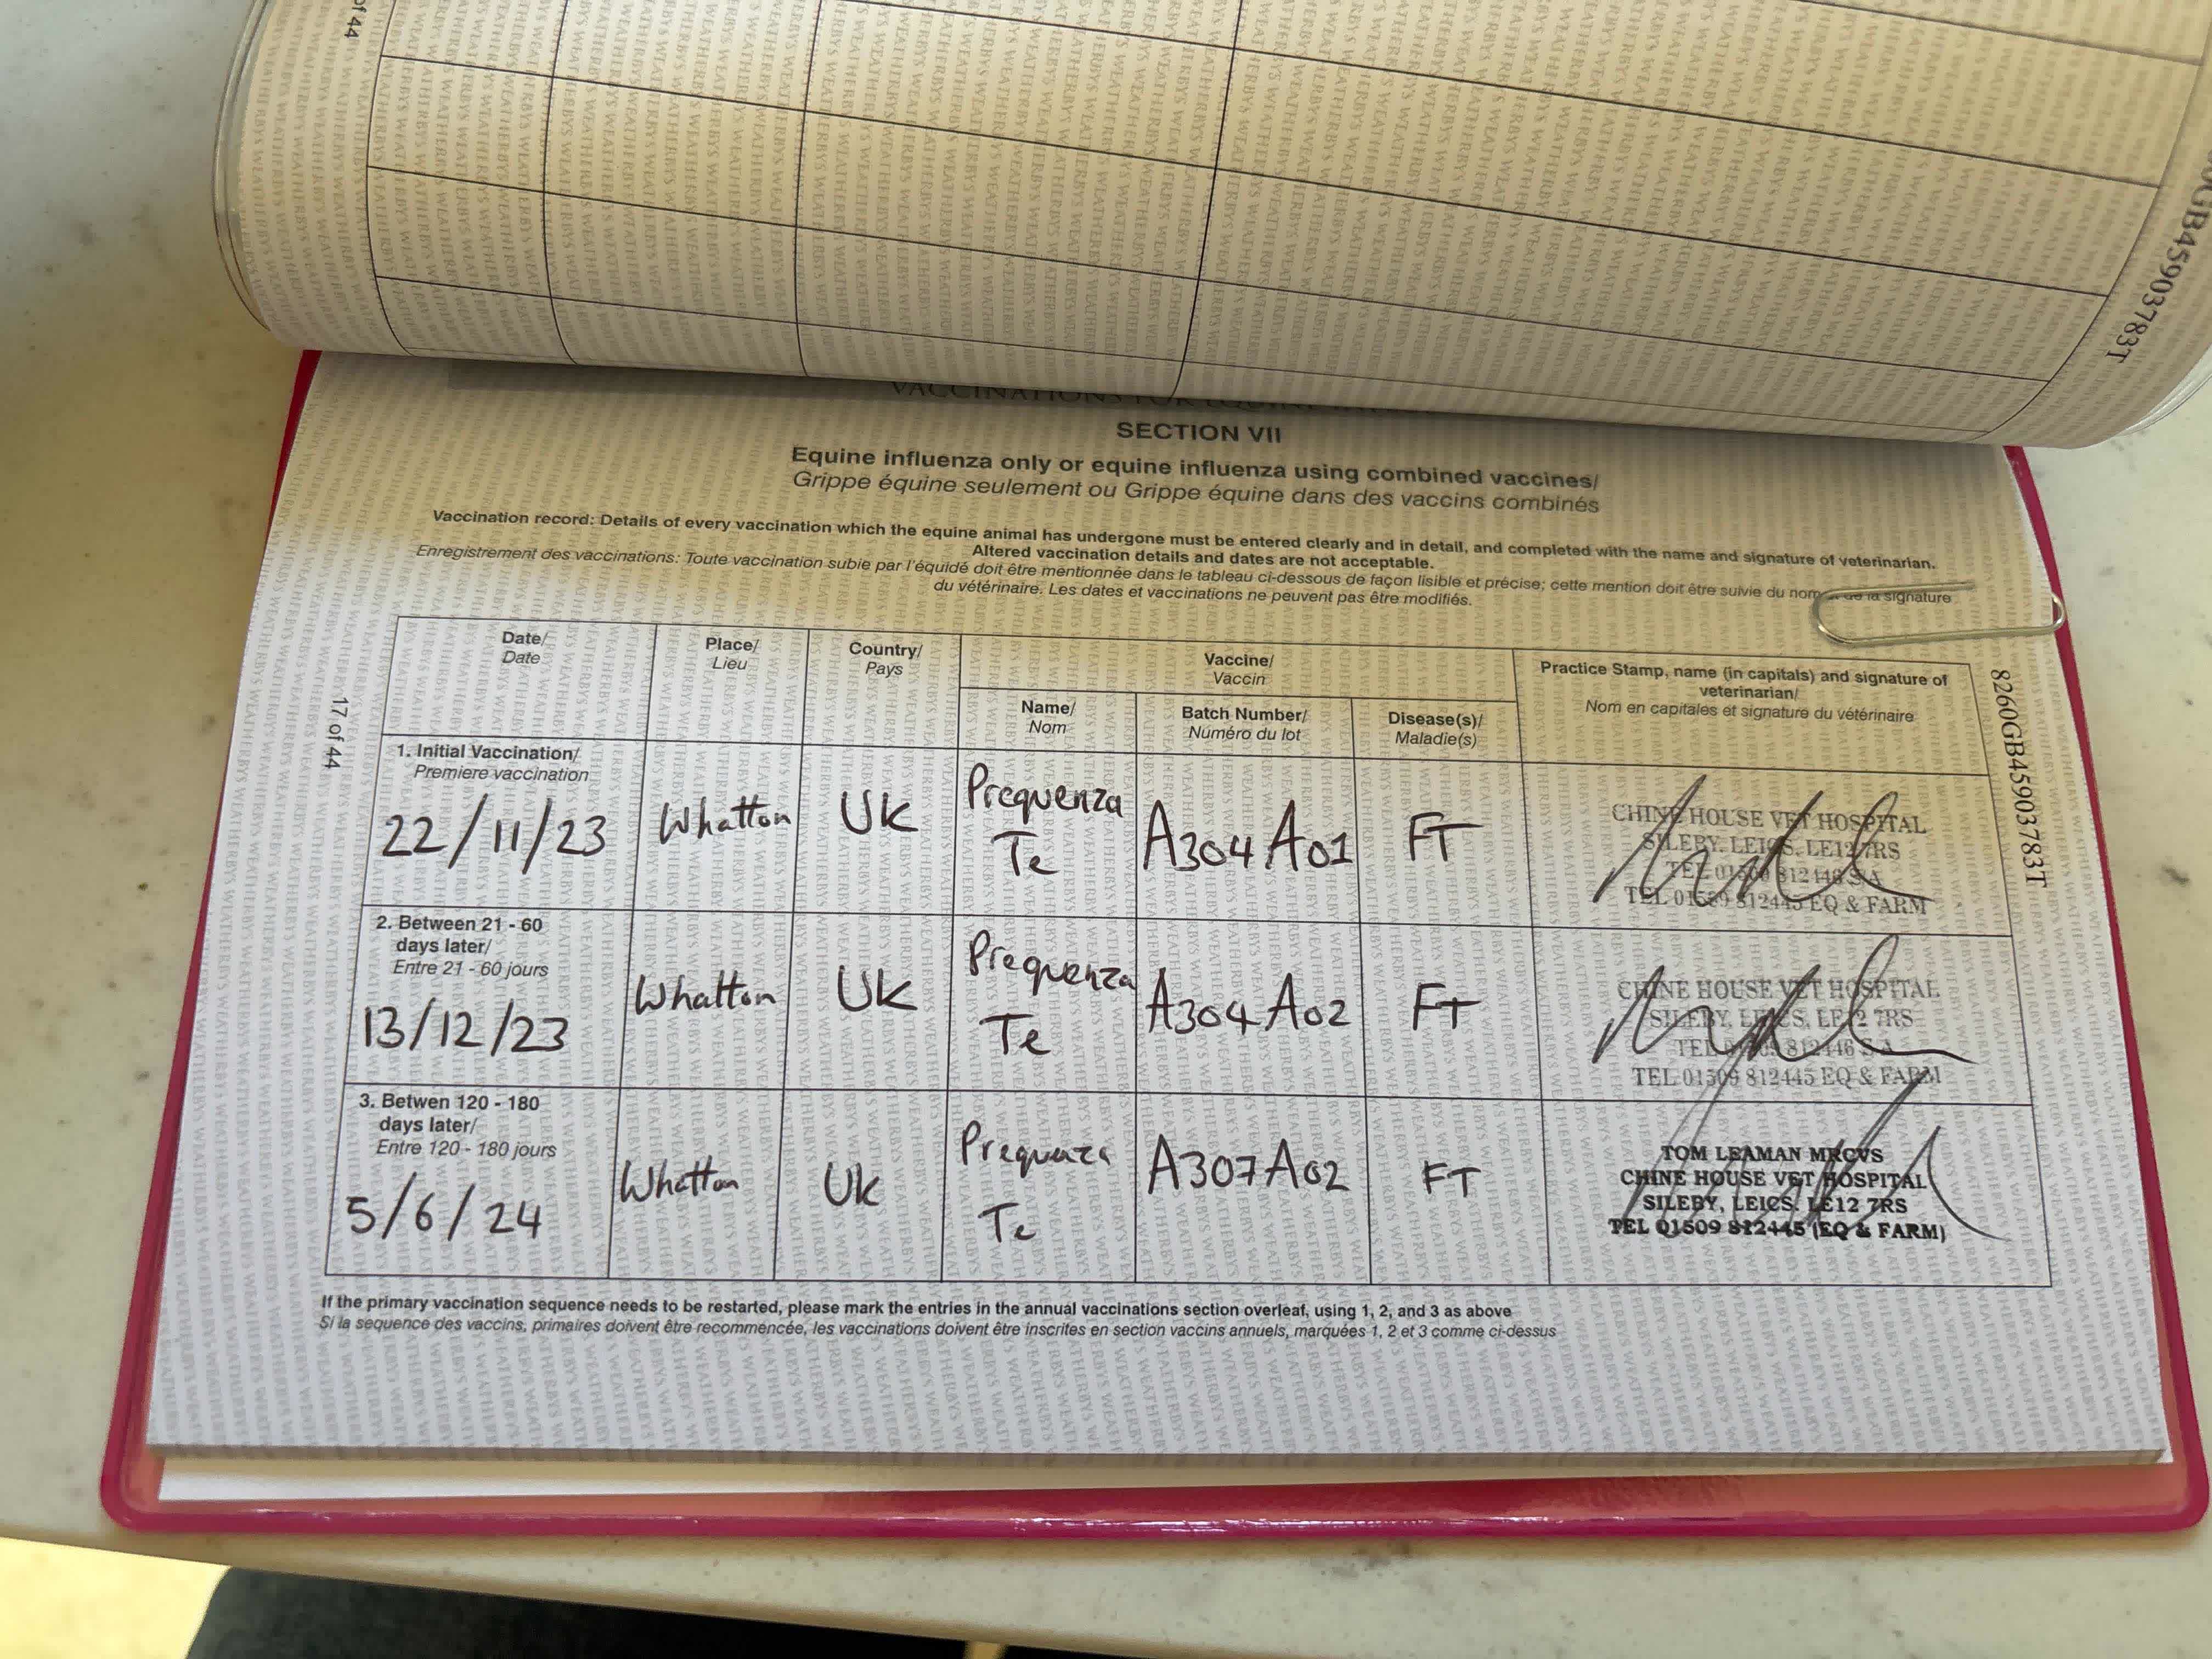 of 44
0GB45903783T
VACCINATIONS FOR EQUINE
SECTION VII
Equine influenza only or equine influenza using combined vaccines/
Grippe équine seulement ou Grippe équine dans des vaccins combinés
Vaccination record: Details of every vaccination which the equine animal has undergone must be entered clearly and in detail, and completed with the name and signature of veterinarian.
Altered vaccination details and dates are not acceptable.
Enregistrement des vaccinations: Toute vaccination subie par l'équidé doit être mentionnée dans le tableau ci-dessous de façon lisible et précise; cette mention doit être suivie du nom et de la signature
du vétérinaire. Les dates et vaccinations ne peuvent pas être modifiés.
Date/
Date
Place/
Lieu
Country/
Pays
Vaccine/
Vaccin
Name/
Nom
Batch Number/
Numéro du lot
Disease(s)/
Maladie(s)
Practice Stamp, name (in capitals) and signature of
veterinarian/
Nom en capitales et signature du vétérinaire
1. Initial Vaccination/
Premiere vaccination
22/11/23
Whatton
UK
Prequenza
Te
A304A01
FT
CHINE HOUSE VET HOSPITAL
SILEBY, LEICS. LE12 7RS
TEL 01509 812446 S.A
TEL 01509 812445 EQ & FARM
2. Between 21 - 60
days later/
Entre 21 - 60 jours
13/12/23
Whatton
UK
Prequenza
Te
A304A02
FT
CHINE HOUSE VET HOSPITAL
SILEBY, LEICS, LE12 7RS
TEL 01509 812446 S.A
TEL 01509 812445 EQ & FARM
3. Betwen 120 - 180
days later/
Entre 120 - 180 jours
5/6/24
Whatton
UK
Prequenza
Te
A307A02
FT
TOM LEAMAN MRCVS
CHINE HOUSE VET HOSPITAL
SILEBY, LEICS. LE12 7RS
TEL 01509 812445 (EQ & FARM)
If the primary vaccination sequence needs to be restarted, please mark the entries in the annual vaccinations section overleaf, using 1, 2, and 3 as above
Si la sequence des vaccins, primaires doivent être recommencée, les vaccinations doivent être inscrites en section vaccins annuels, marquées 1, 2 et 3 comme ci-dessus
17 of 44
8260GB45903783T